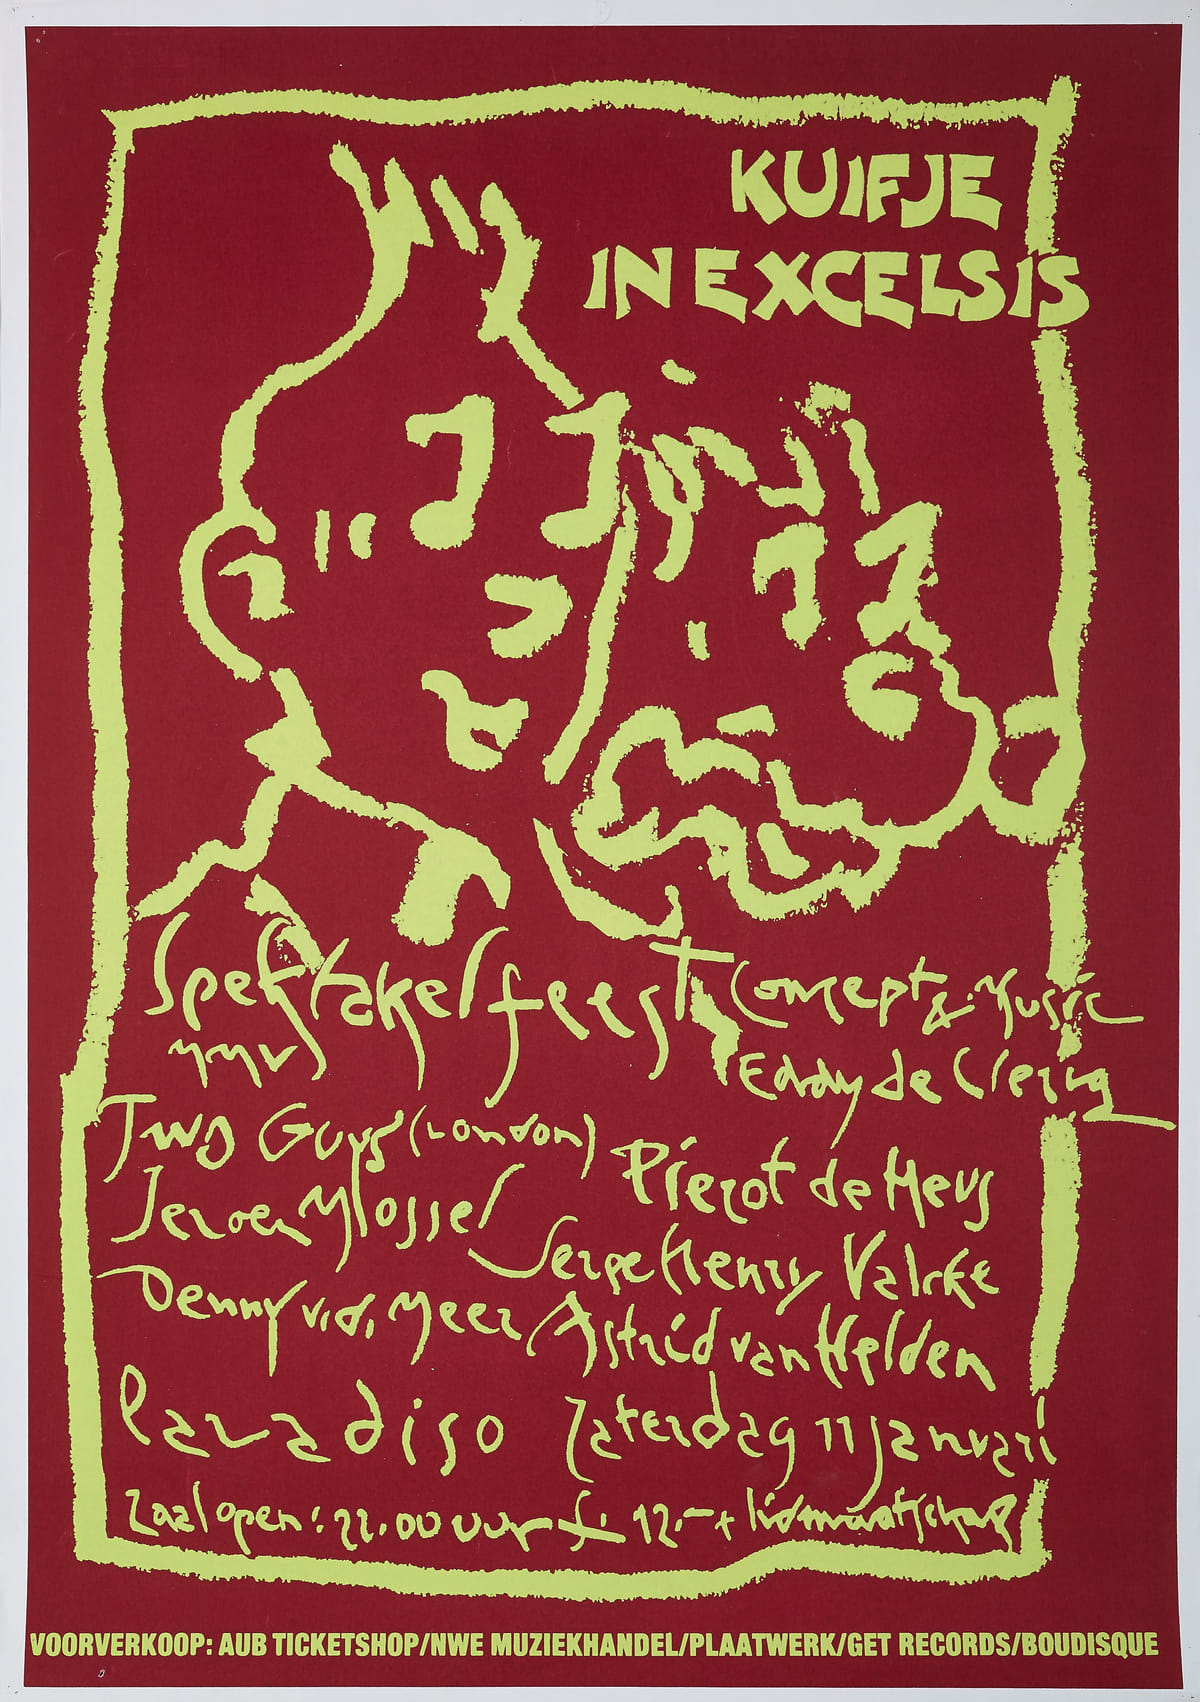 KUIFJE
IN EXCELSIS
Spektakelfeest
mmv
Concept & Music
Eddy de Clercq
Two Guys (London)
Pierot de Heus
Jeroen Flossel
Serge Henry Valcke
Denny v.d. Meer
Astrid van Helden
Paradiso Zaterdag 11 januari
zaal open: 22.00 uur f. 12.- + lidmaatschap
VOORVERKOOP: AUB TICKETSHOP/NWE MUZIEKHANDEL/PLAATWERK/GET RECORDS/BOUDISQUE